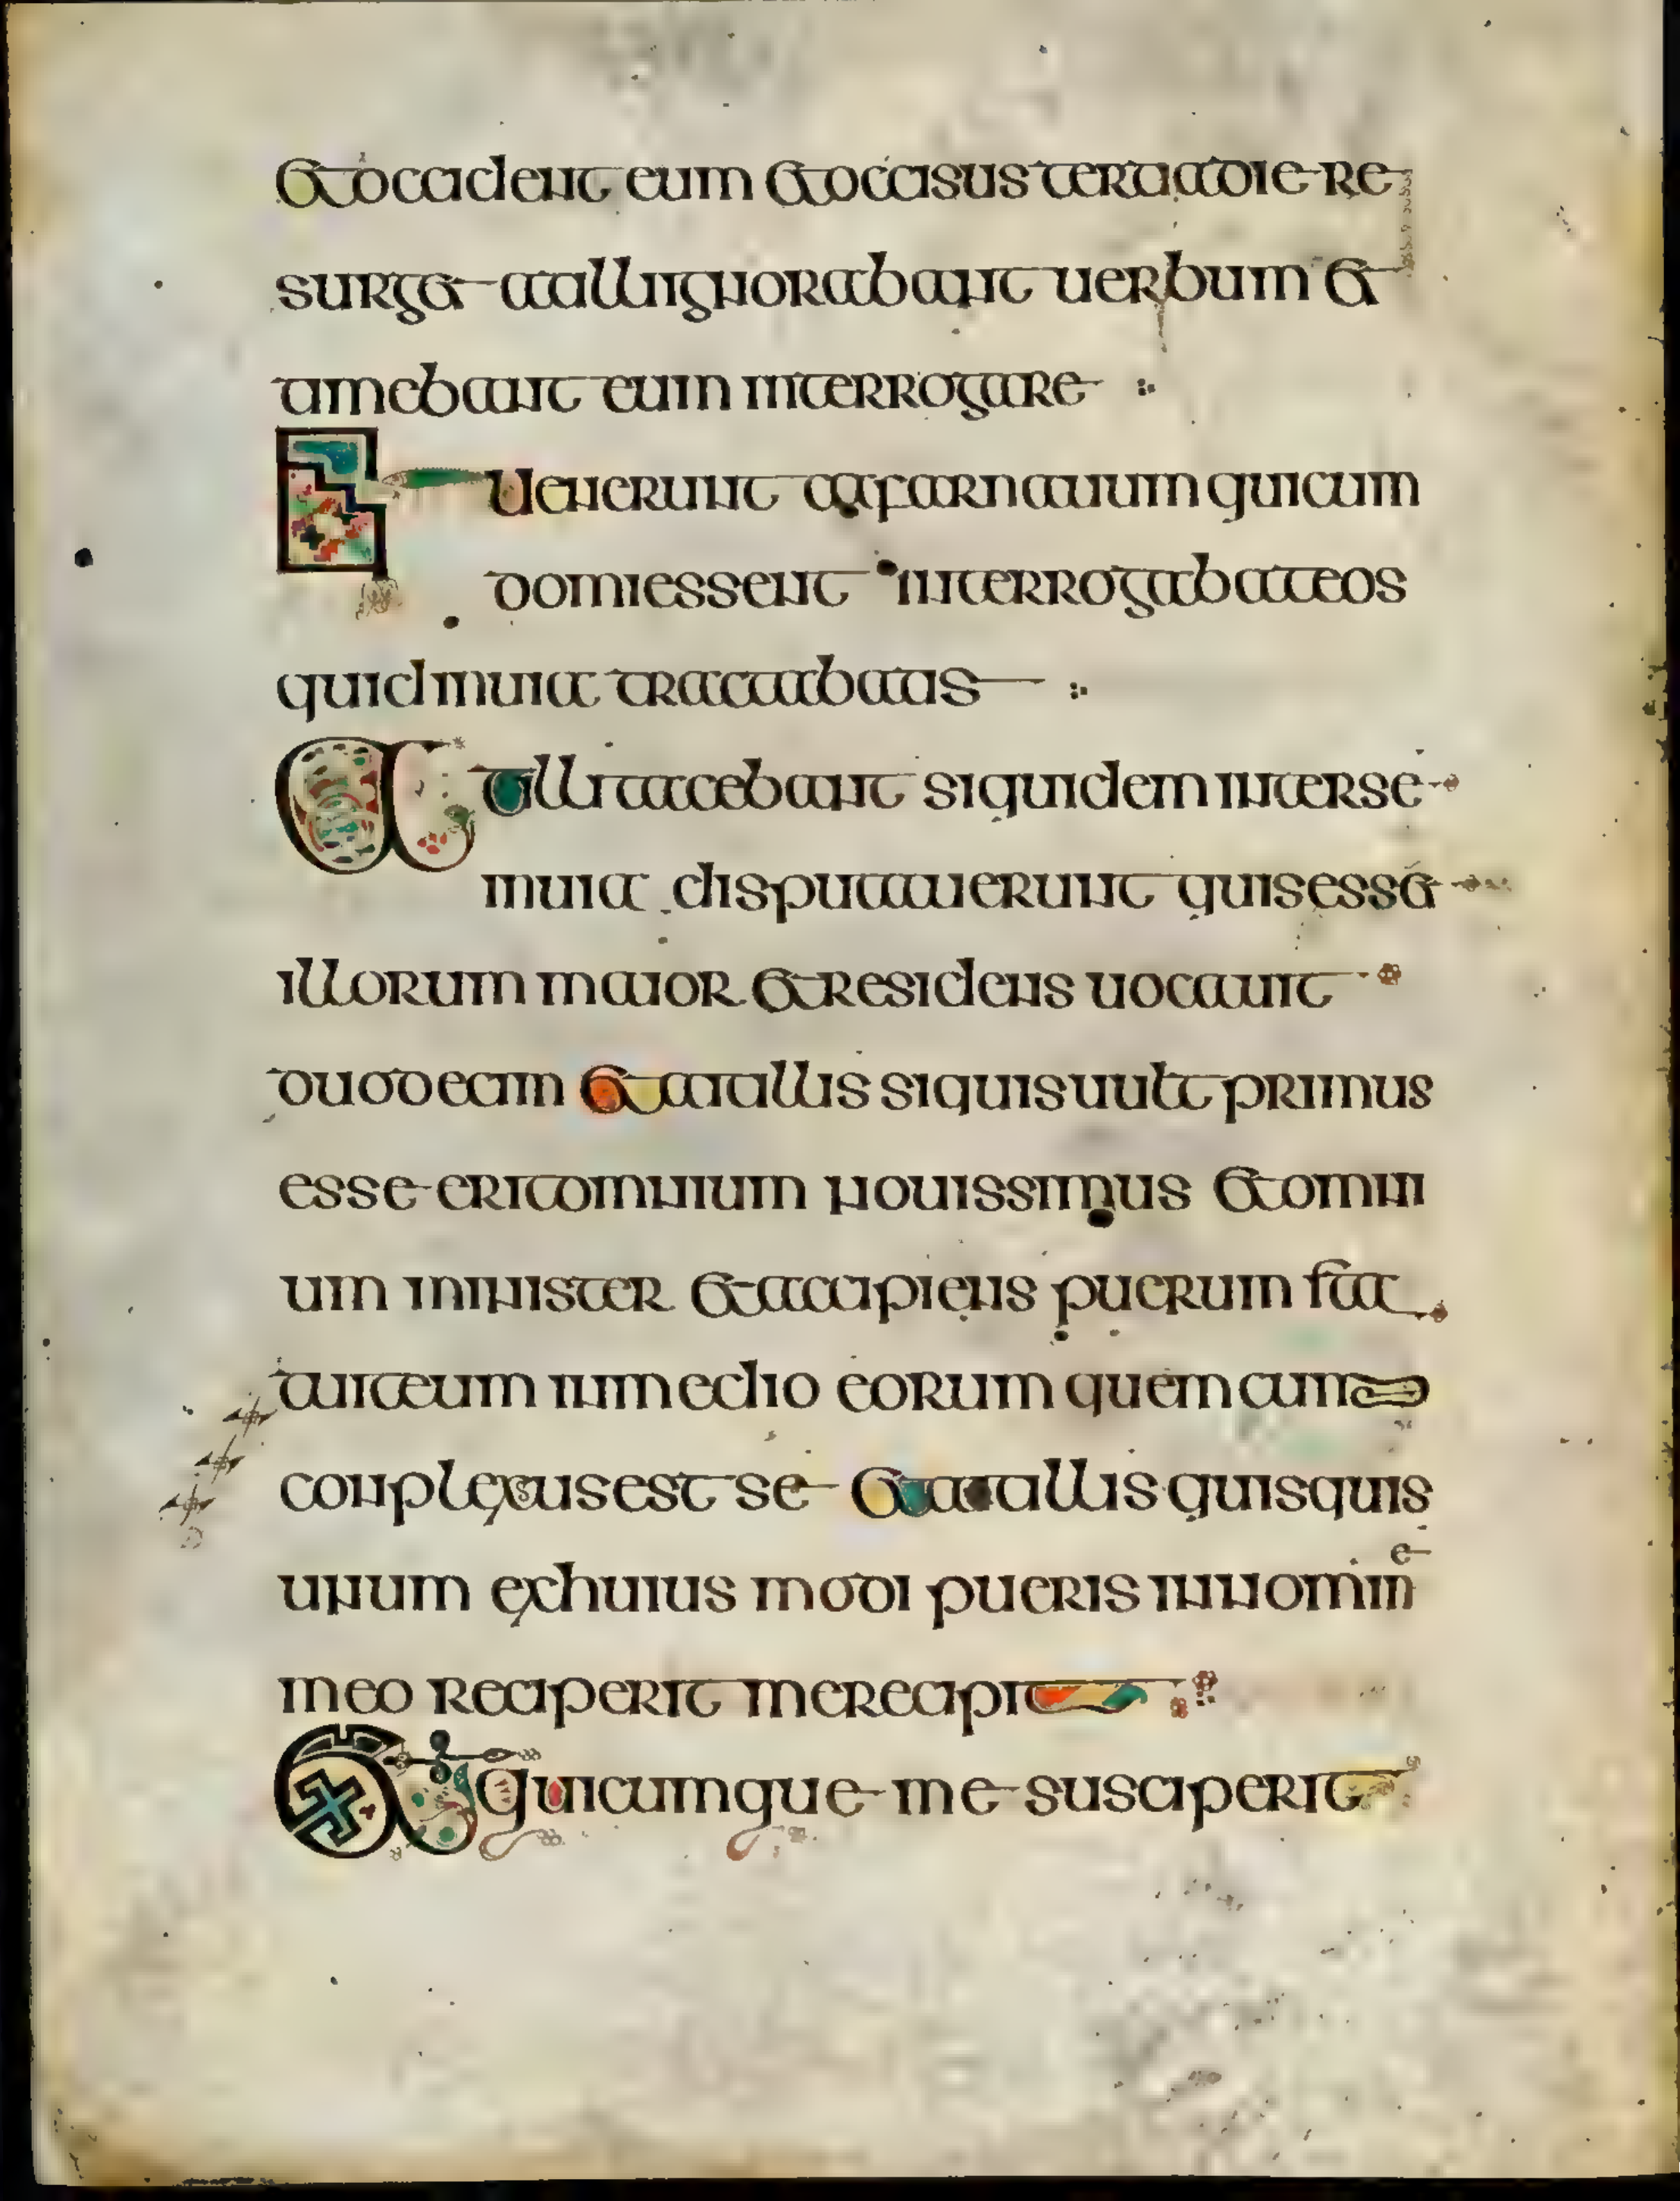 Et occident eum et occisus tertia die re
surget at illi ignorabant uerbum et
timebant eum interrogare
Et uenerunt cafarnauum qui cum
domi essent interrogabat eos
quid in uia tractabatis
At illi tacebant siquidem inter se
in uia disputauerunt quis esset
illorum maior et residens uocauit
duodecim et ait illis si quis uult primus
esse erit omnium nouissimus et omni
um minister et accipiens puerum sta
tuit eum in medio eorum quem cum
conplexus est se et ait illis quisquis
unum ex huiusmodi pueris in nomine
meo reciperit me recipit
Et quicumque me susciperit